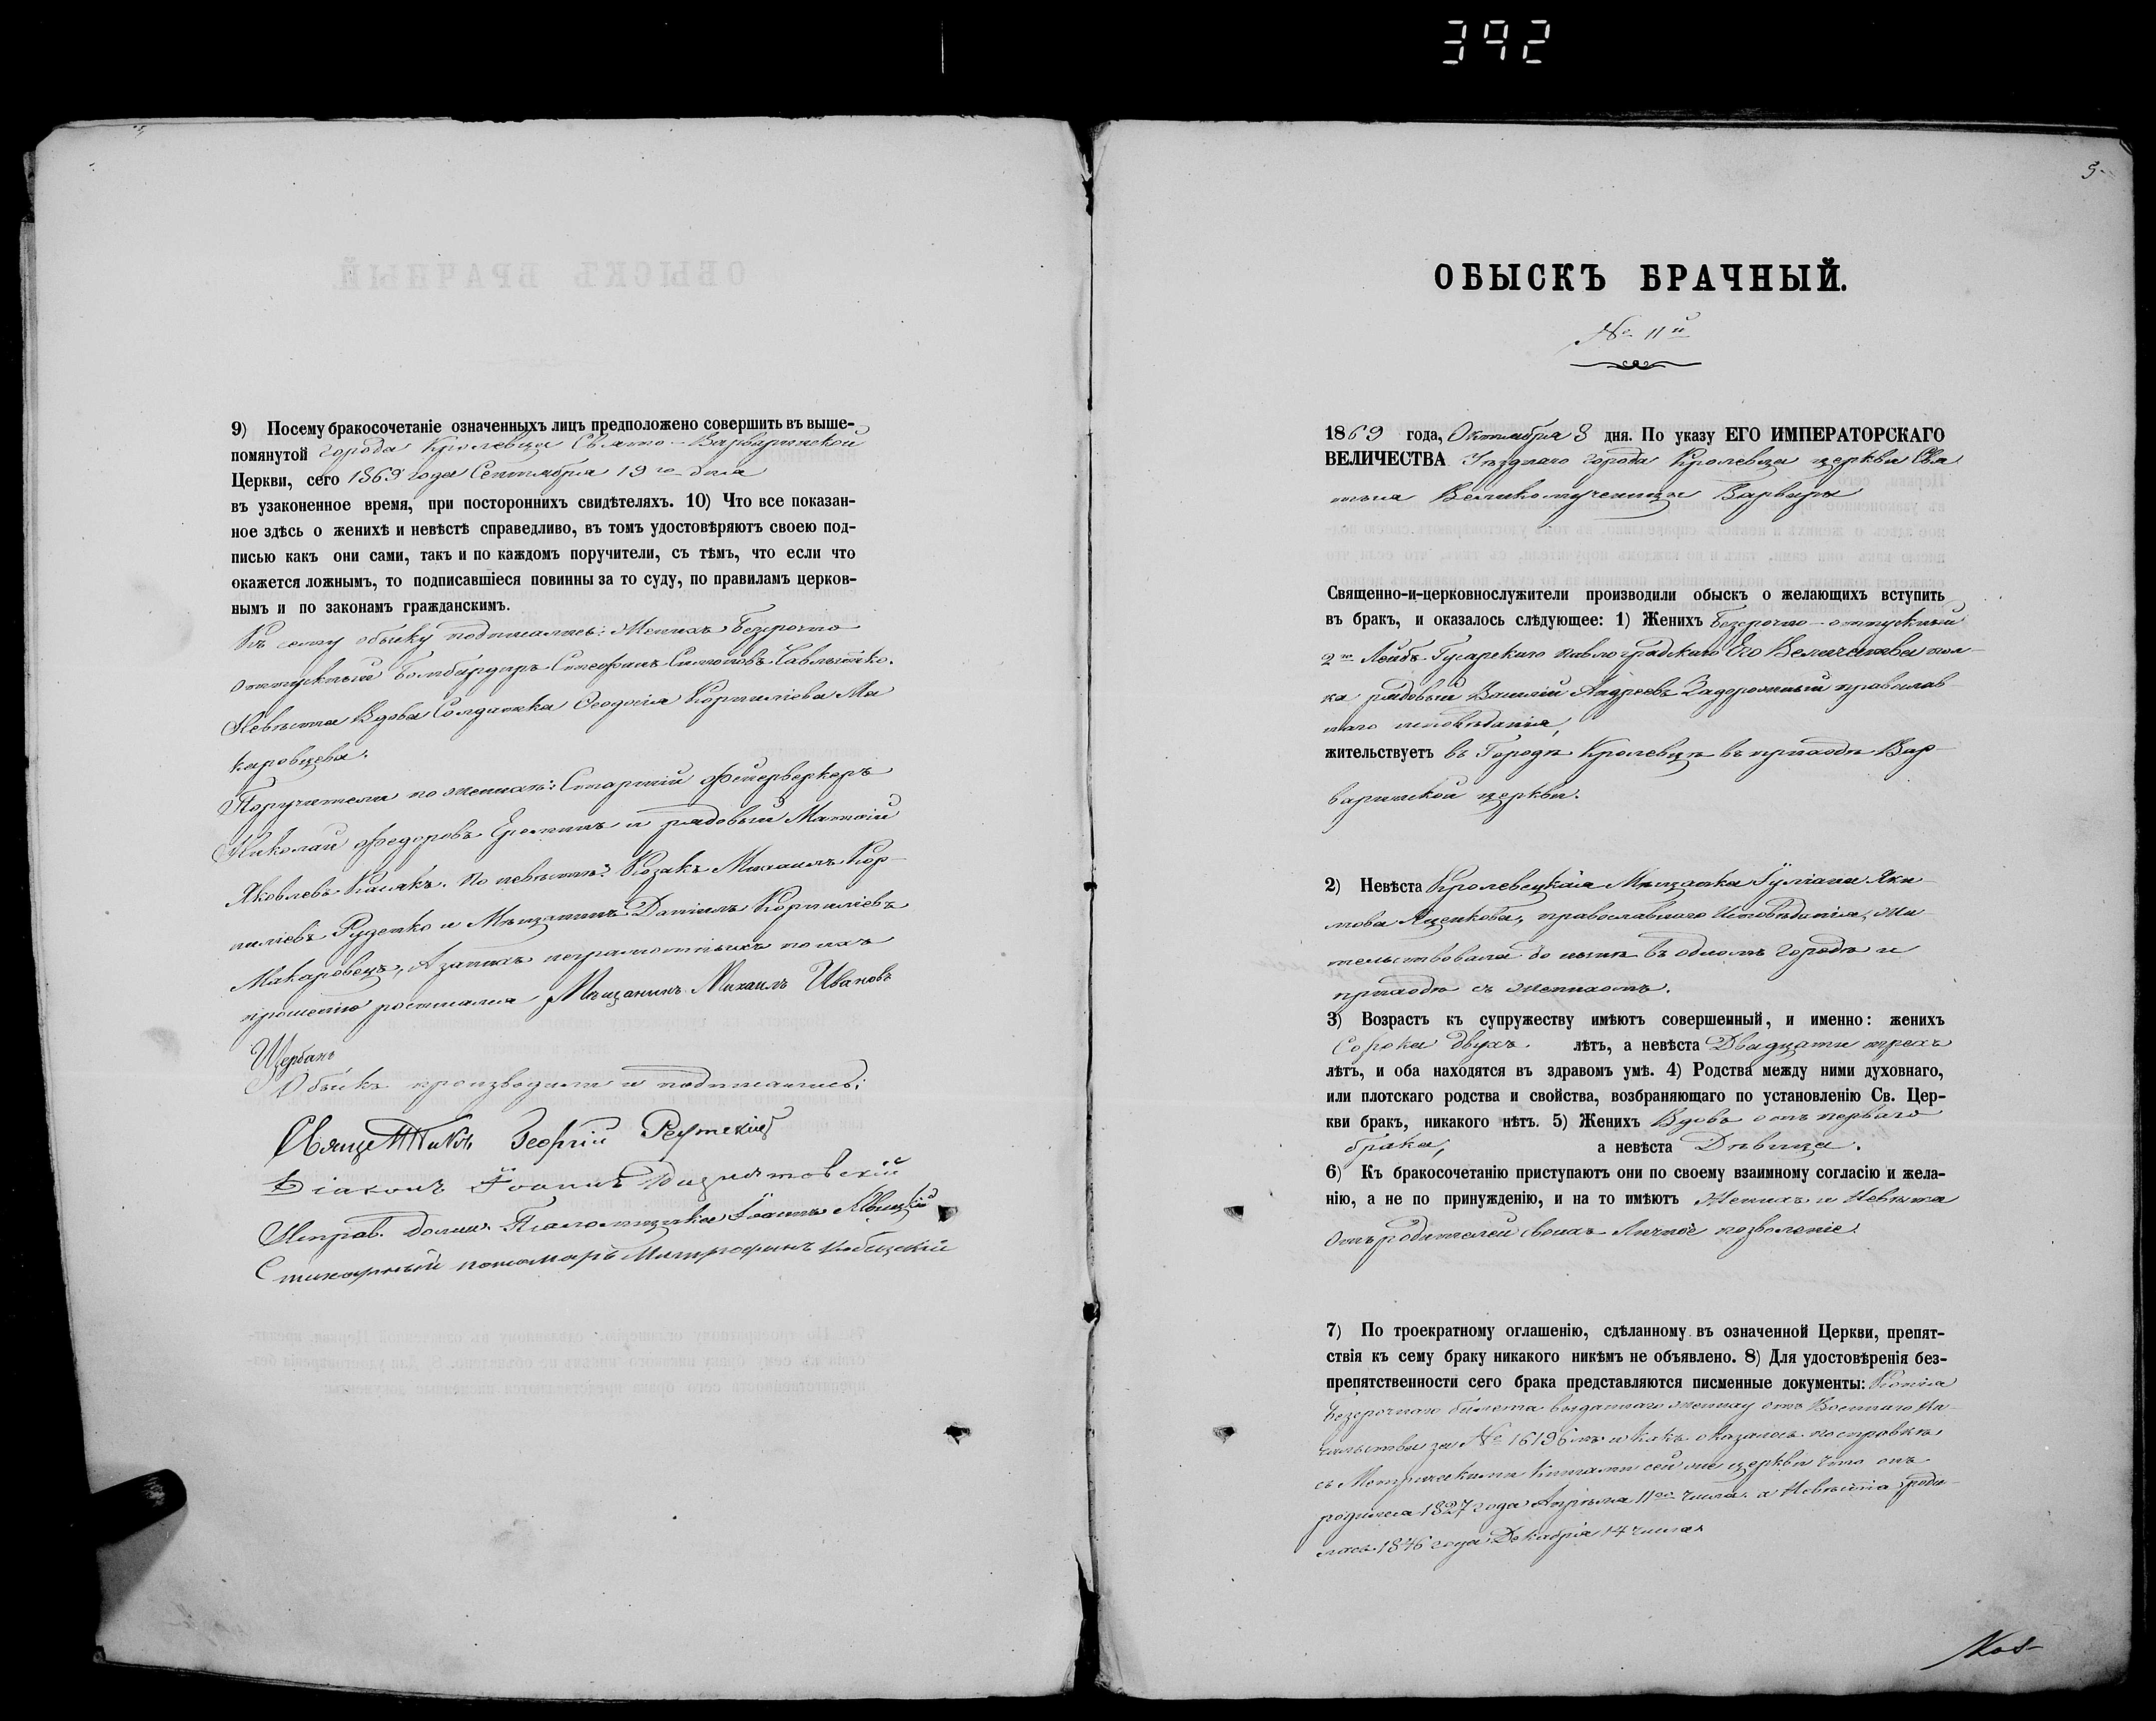 392
9) Посему бракосочетаніе означенныхъ лицъ предположено совершить въ выше-
помянутой города Кролевца Свято-Варваринской
Церкви, сего 1869 года Сентября 19го дня
въ узаконенное время, при постороннихъ свидѣтеляхъ. 10) Что все показан-
ное здѣсь о женихѣ и невѣстѣ справедливо, въ томъ удостовѣряютъ своею под-
писью какъ они сами, такъ и по каждомъ поручители, съ тѣмъ, что если что
окажется ложнымъ, то подписавшіеся повинны за то суду, по правиламъ церков-
нымъ и по законамъ гражданскимъ.
Къ сему обыску подписались: Женихъ безсрочно
отпускный Бомбардиръ Стефанъ Симоновъ
Невѣста Вдова Солдатка Ѳеодосія Корниліова Ма
каровцева.
Поручители по женихѣ: Старшій Фейерверкеръ
Николай Федоровъ Ероминъ и рядовый Матвій
Яковлевъ. По невѣстѣ: Козакъ Михаилъ Кор-
ниліевъ Руденко и Мѣщанинъ Даніилъ Корниліевъ
Макаровецъ, А за нихъ неграмотныхъ по ихъ
прошенію росписался Мѣщанинъ Михаилъ Ивановъ
Щербань
Обыскъ производили и подписались:
Священникъ Георгій Реутскій
Діаконъ Іоаннъ
Исправ. долж. Псаломщика Іоаннъ
Стихарный пономарь Митрофанъ
3
ОБЫСКЪ БРАЧНЫЙ.
№ 11й
1869 года, Октября 8 дня. По указу ЕГО ИМПЕРАТОРСКАГО
ВЕЛИЧЕСТВА Уѣзднаго города Кролевца церкви Свя
тыя Великомученицы Варвары
Священно-и-церковнослужители производили обыскъ о желающихъ вступить
въ бракъ, и оказалось слѣдующее: 1) Женихъ Безсрочно-отпускный
2го Лейбъ Гусарскаго Павлоградскаго Его Величества пол-
ка рядовый Василій Андреевъ Задорожный православ-
наго исповѣданія,
жительствуетъ въ Городѣ Кролевцѣ въ приходѣ Вар-
варинской церкви.
2) Невѣста Кролевецкая Мѣщанка Іуліана Яки-
мова Яценкова, православнаго Исповѣданія, Жи-
тельствовала до нынѣ въ одномъ городѣ и
приходѣ съ женихомъ.
3) Возрастъ къ супружеству имѣютъ совершенный, и именно: женихъ
Сорока двухъ. лѣтъ, а невѣста Двадцати трехъ
лѣтъ, и оба находятся въ здравомъ умѣ. 4) Родства между ними духовнаго,
или плотскаго родства и свойства, возбраняющаго по установленію Св. Цер-
кви бракъ, никакого нѣтъ. 5) Женихъ Вдовъ отъ перваго
брака, а невѣста Дѣвица.
6) Къ бракосочетанію приступаютъ они по своему взаимному согласію и жела-
нію, а не по принужденію, и на то имѣютъ Женихъ и Невѣста
Отъ родителей своихъ Личное позволеніе.
7) По троекратному оглашенію, сдѣланному въ означенной Церкви, препят-
ствія къ сему браку никакого никѣмъ не объявлено. 8) Для удостовѣренія без-
препятственности сего брака представляются писменные документы: Копія
безсрочнаго билета выданнаго жениху отъ Военнаго На-
чальства за № 16196мъ и какъ оказалось по справкѣ
съ Метрическими книгами сей же церкви что онъ
родился 1827 года Апрѣля 11го числа. а Невѣста роди-
лась 1846 года Декабря 14 числа.